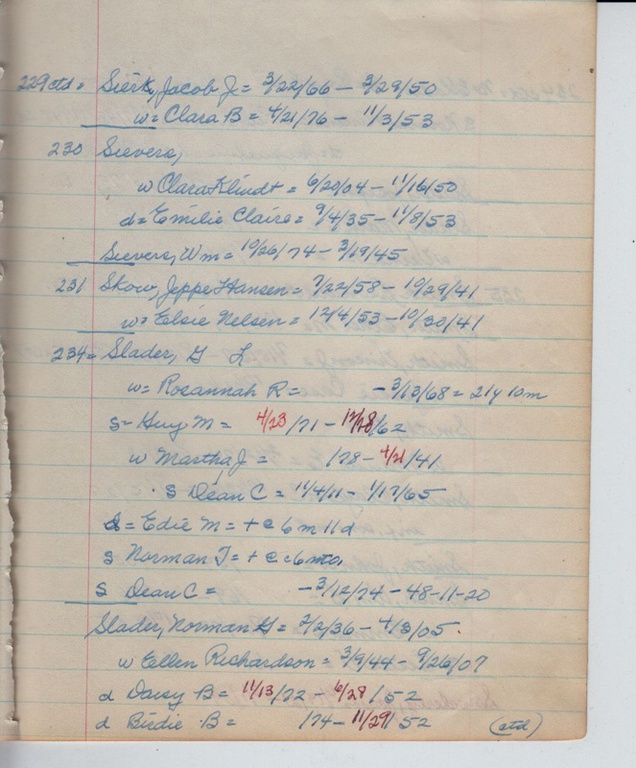 229 ctd = Sierk, Jacob J = 3/22/66 - 3/29/50
w = Clara B = 4/21/76 - 11/3/53
230 Sievers,
w Clara Klindt = 6/20/04 - 11/16/50
d = Emilie Claire = 9/4/35 - 11/8/53
Sievers, Wm = 10/26/74 - 3/19/45
231 Skow, Jeppe Hansen = 7/22/58 - 10/29/41
w = Elsie Nelsen = 12/4/53 - 10/30/41
234 = Slader, G L
w = Rosannah R = - 3/13/68 = 21y 10m
s = Guy M = 4/23/71 - 12/28/62
w Martha J = /78 - 4/21/41
s Dean C = 11/4/11 - 1/17/65
d = Edie M = + @ 6 m 11 d
s Norman T = + @ 6 mo,
s Dean C = - 3/12/74 - 48-11-20
Slader, Norman G = 2/2/36 - 4/3/05.
w Ellen Richardson = 3/9/44 - 9/26/07
d Daisy B = 11/13/72 - 6/28/52
d Birdie B = /74 - 11/29/52 (ctd)